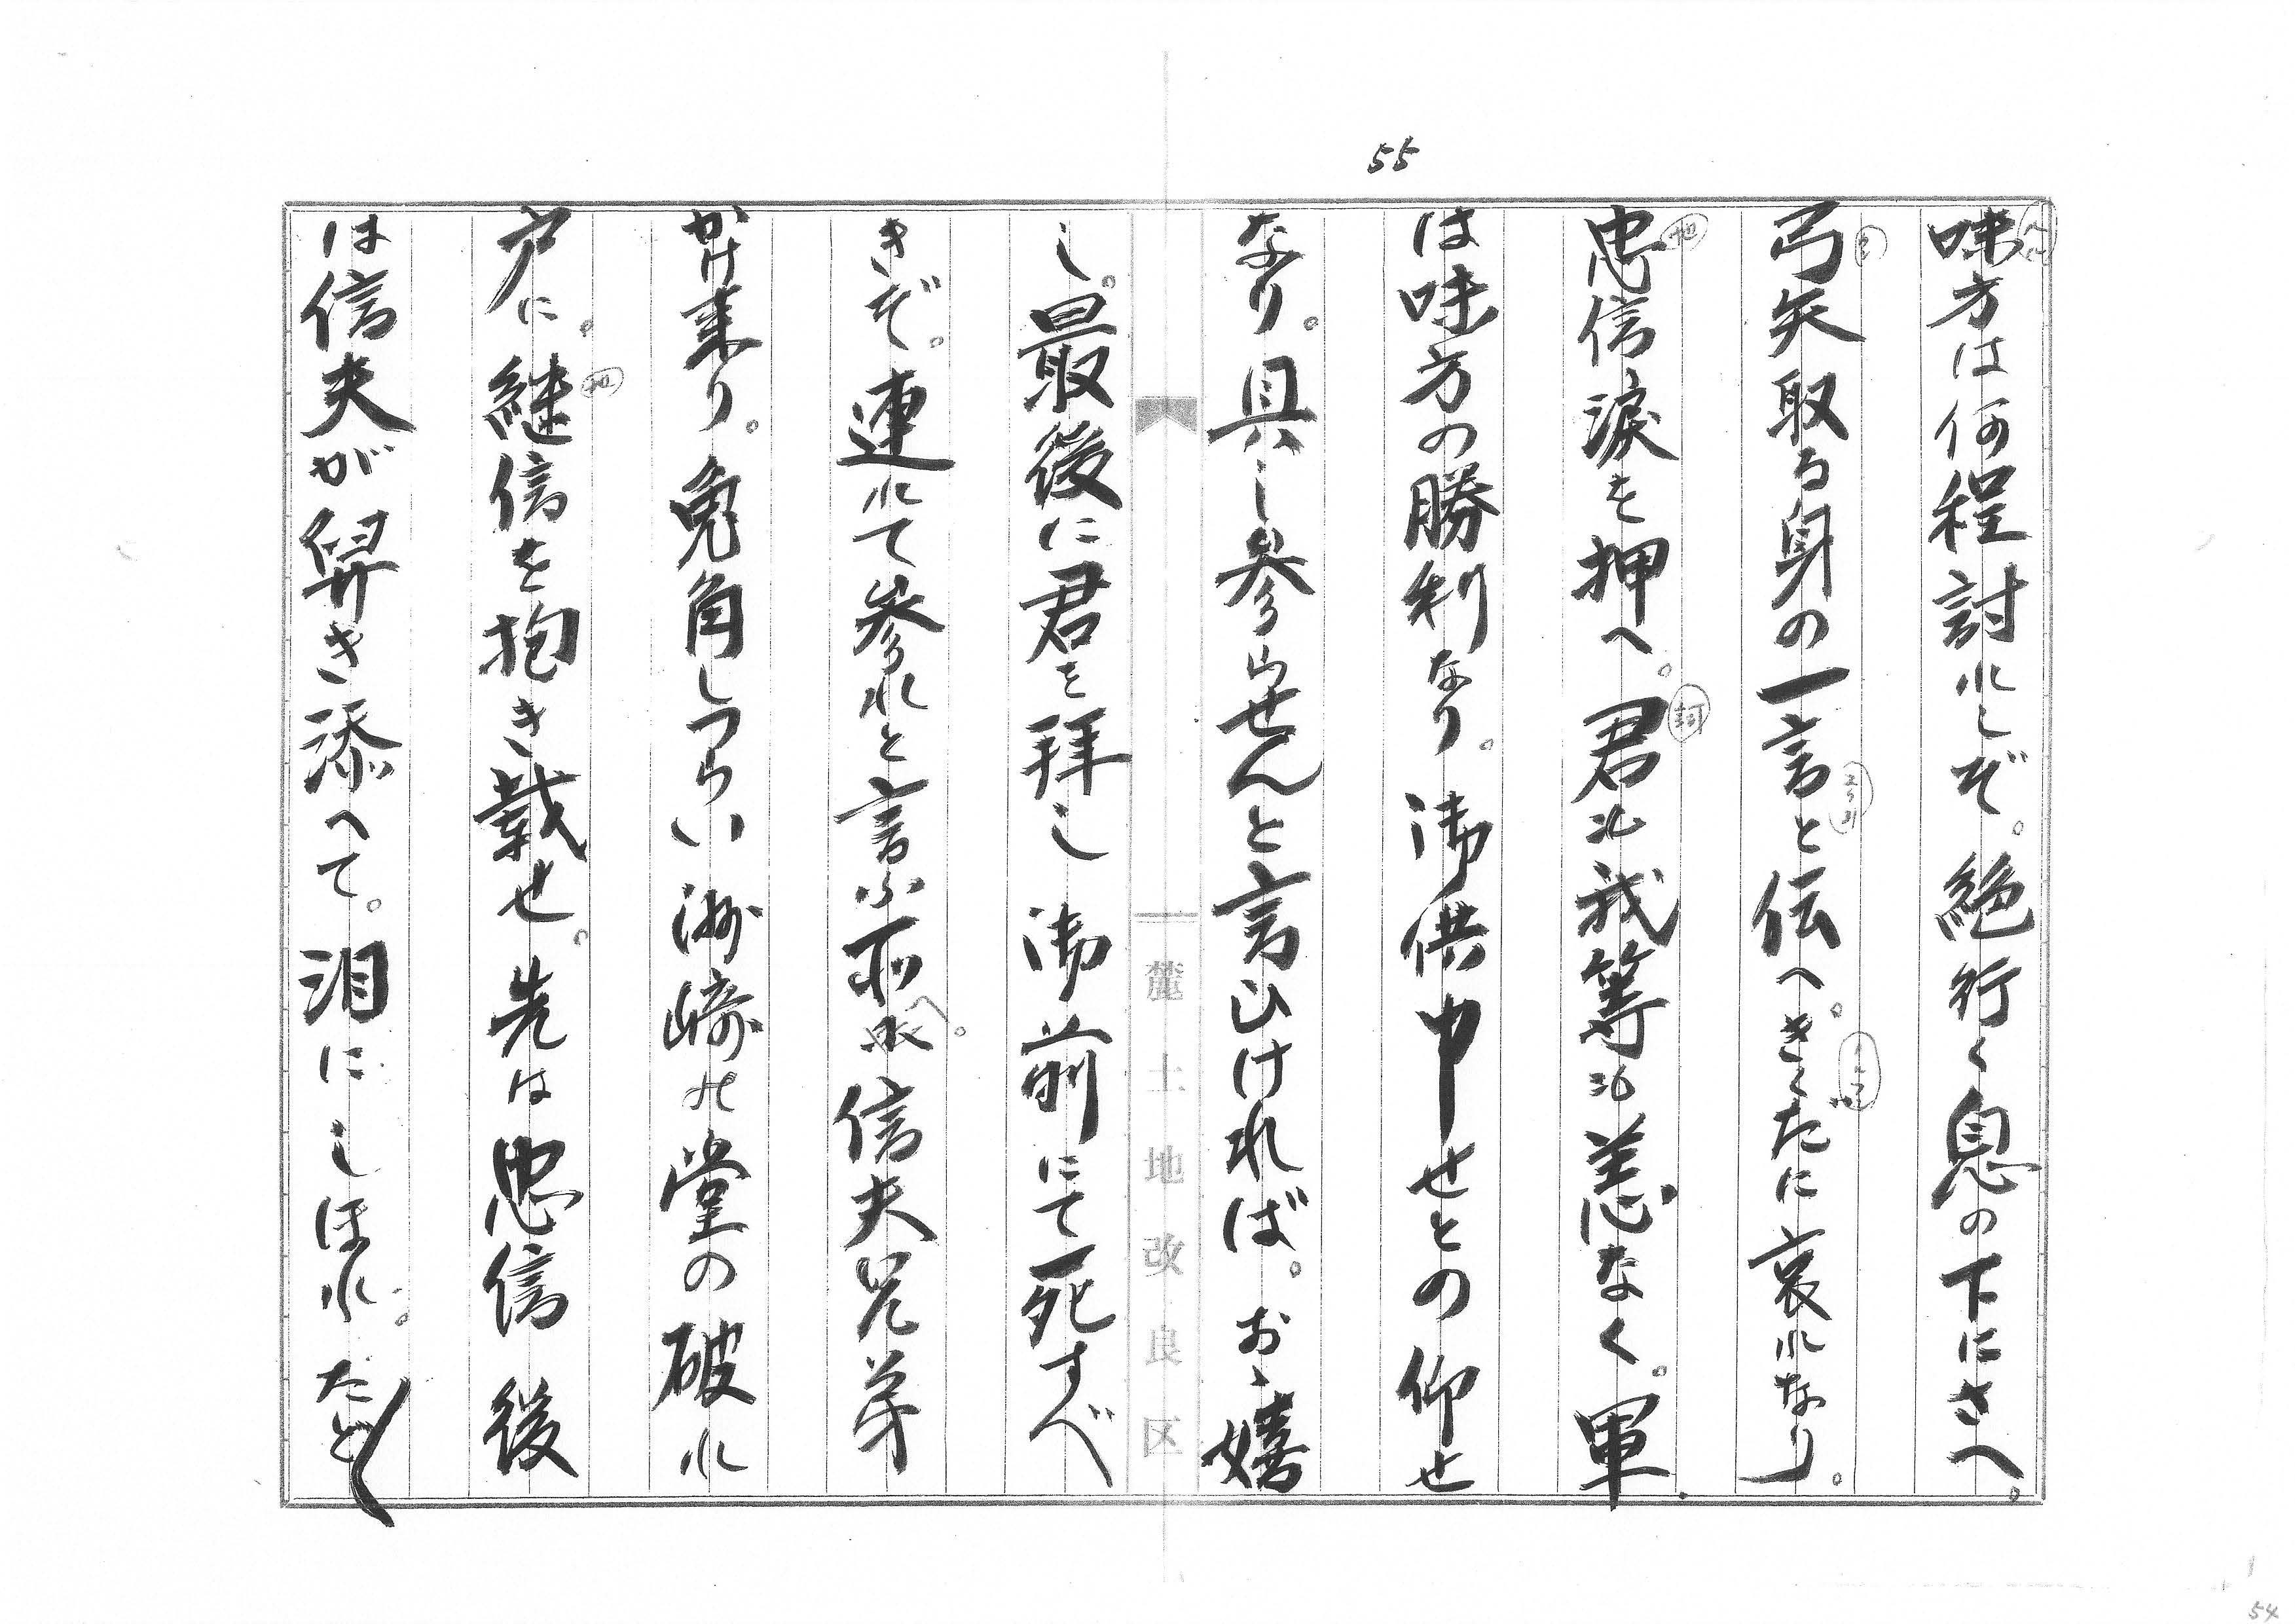 55
味方は何程討れしぞ。絶行く息の下にさへ。
弓矢取る身の一言と伝へ。きくたに哀れなり。
忠信涙を押へ。君も我等も恙なく。軍
は味方の勝利なり。御供申せとの仰せ
なり。具し参らせんと言ひければ。おゝ嬉
し。最後に君を拝し御前にて死すべ
きぞ。連れて参れと言ふ所へ。信夫兄弟
かけ来り。兎角しつらい洲崎の堂の破れ
戸に。継信を抱き載せ。先は忠信後
は信夫が舁き添へて。泪にしほれ。たど〱
麓土地改良区
54